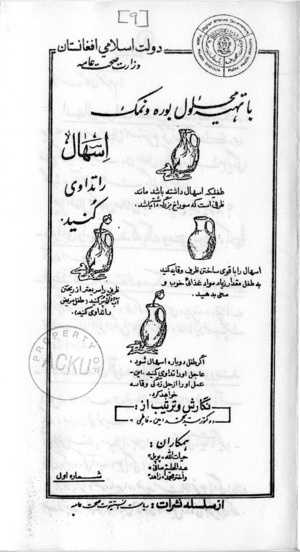 [۹]
دولت اسلامی افغانستان
وزارت صحت عامه
با تهیه محلول بوره و نمک
اسهال
را تداوی
کنید.
طفلیکه اسهال داشته باشد مانند
ظرفی است که سوراخ بزرگ داشته باشد.
اسهال را با قوی ساختن ظرف وقایه کنید
به طفل مقدار زیاد مواد غذائی خوب و
صحی بدهید.
ظرف را سر بعتر از ریختن
آب آن پر کنید؛ طفل مریض
را تداوی کنید.
اگر طفل دوباره اسهال شود.
عاجل او را تداوی کنید. این
عمل او را از حل زندگی وقایه
خواهد کرد.
نگارش و ترتیب از:
همکاران:
شماره اول
از سلسله نشرات: ریاست
PROPERTY OF
ACKU